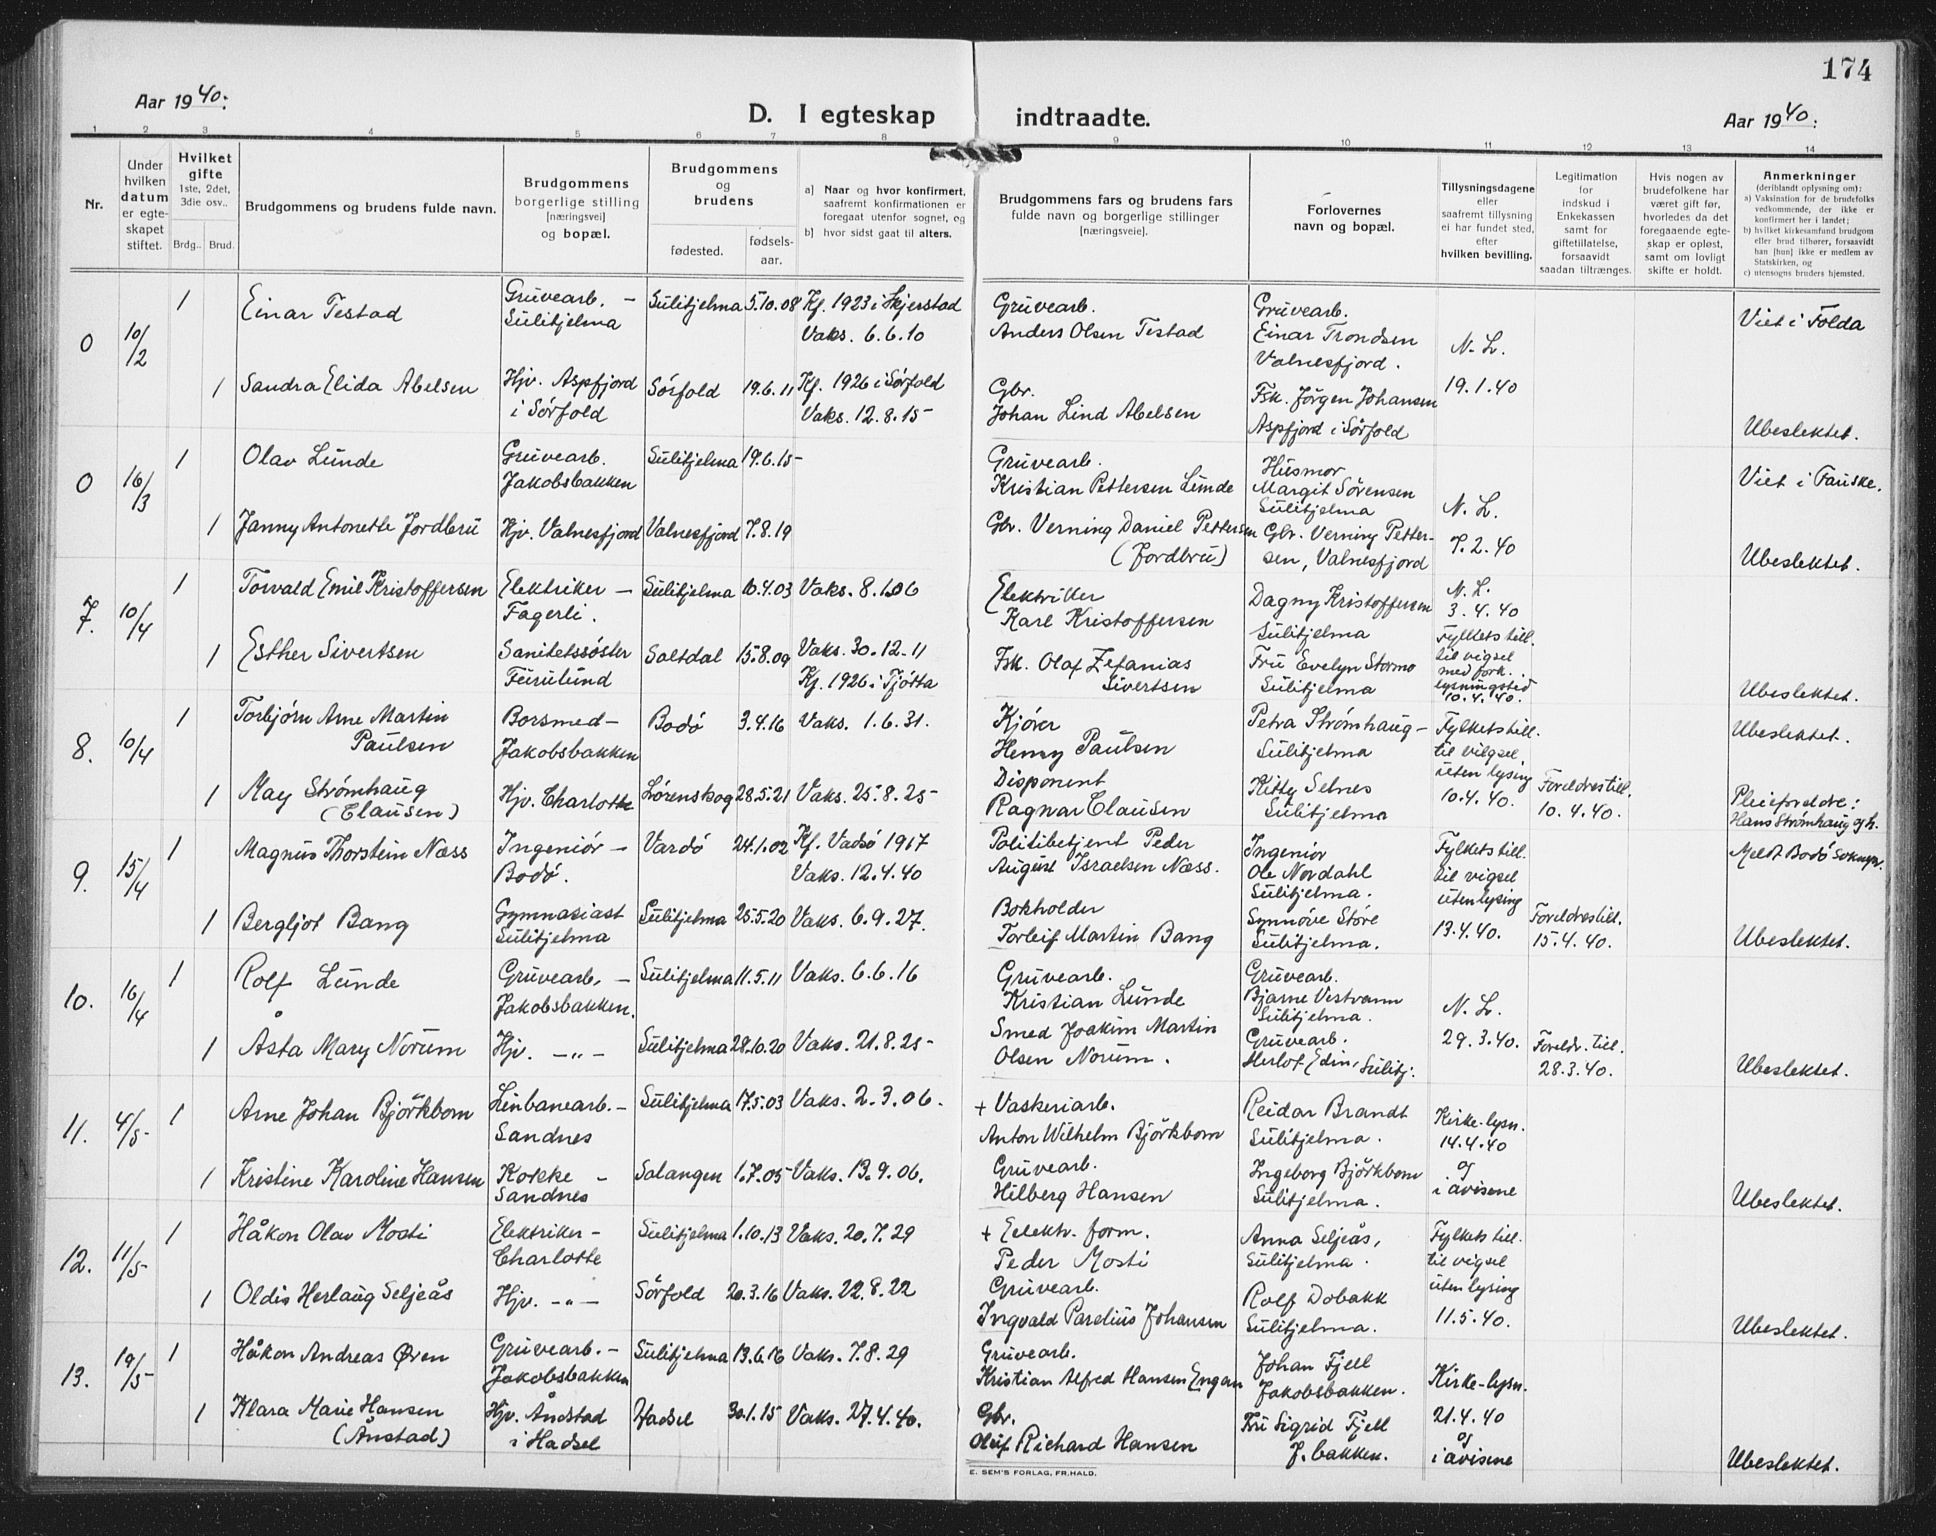 174
Aar 1940:
D. I egteskap indtraadte.
Aar 1940:
1 2 3 4 5 6 7 8 9 10 11 12 13 14
Nr.
Under hvilken datum er egte-skapet stiftet.
Hvilket gifte 1ste, 2det, 3die osv..
Brdg.. Brud.
Brudgommens og brudens fulde navn.
Brudgommens borgerlige stilling [næringsvei] og bopæl.
Brudgommens og brudens
fødested. fødsels-aar.
a) Naar og hvor konfirmert, saafremt konfirmationen er foregaat utenfor sognet, og
b) hvor sidst gaat til alters.
Brudgommens fars og brudens fars fulde navn og borgerlige stillinger [næringsveie].
Forlovernes navn og bopæl.
Tillysningsdagene eller saafremt tillysning ei har fundet sted, efter hvilken bevilling.
Legitimation for indskud i Enkekassen samt for giftetillatelse, forsaavidt saadan tiltrænges.
Hvis nogen av brudefolkene har været gift før, hvorledes da det foregaaende egte-skap er opløst, samt om lovligt skifte er holdt.
Anmerkninger (deriblandt oplysning om):
a) Vaksination for de brudefolks vedkommende, der ikke er konfirmert her i landet;
b) hvilket kirkesamfund brudgom eller brud tilhører, forsaavidt han [hun] ikke er medlem av Statskirken, og
c) utensogns bruders hjemsted.
0 10/2 1 Einar Testad Gruvearb. – Sulitjelma Sulitjelma 5.10.08 Kf. 1923 i Skjerstad Vaks. 6.6.10 Gruvearb. Anders Olsen Testad Gruvearb. Einar Trondsen Valnesfjord. N. L. 19.1.40 Viet i Folda
1 Sandra Elida Abelsen Hjv. Aspfjord i Sørfold Sørfold 19.6.11 Kf. 1926 i Sørfold Vaks. 12.8.15 Gbr. Johan Lind Abelsen Fsk. Jørgen Johansen Aspfjord i Sørfold Ubeslektet.
0 16/3 1 Olav Lunde Gruvearb. Jakobsbakken Sulitjelma 19.6.15 Gruvearb. Kristian Pettersen Lunde Husmor Margit Sørensen Sulitjelma N. L. 7.2.40 Viet i Fauske.
1 Janny Antonette Jordbru Hjv. Valnesfjord Valnesfjord 7.8.19 Gbr. Verning Daniel Pettersen (Jordbru) Gbr. Verning Petter-sen, Valnesfjord Ubeslektet.
7. 10/4 1 Torvald Emil Kristoffersen Elektriker – Fagerli. Sulitjelma 10.4.03 Vaks. 8.1.06 Elektriker Karl Kristoffersen Dagny Kristoffersen Sulitjelma N. L. 3.4.40 Fylkets till. til vigsel med fork. lysningstid 10.4.40.
1 Esther Sivertsen Sanitetssøster Furulund Saltdal 15.8.09 Vaks. 30.12.11 Kf. 1926 i Tjøtta Fsk. Olaf Zefanias Sivertsen Fru Evelyn Stormo Sulitjelma Ubeslektet.
8. 10/4 1 Torbjørn Arne Martin Paulsen Borsmed – Jakobsbakken Bodø 3.4.16 Vaks. 1.6.31. Kjører Henry Paulsen Petra Strømhaug – Sulitjelma Fylkets till. til vigsel uten lysing 10.4.40. Ubeslektet.
1 May Strømhaug (Clausen) Hjv. Charlotte Lørenskog 28.5.21 Vaks. 25.8.25 Disponent Ragnar Clausen Kitty Selnes Sulitjelma Foreldres till. 10.4.40. Pleieforeldre: Hans Strømhaug og h.
9. 15/4 1 Magnus Thorstein Næss Ingeniør – Bodø. Vardø 24.1.02 Kf. Vadsø 1917 Vaks. 12.4.40 Politibetjent Peder August Israelsen Næss. Ingeniør Ole Nordahl Sulitjelma. Fylkets till. til vigsel uten lysing 13.4.40. Meldt Bodø
1 Bergljot Bang Gymnasiast Sulitjelma Sulitjelma 25.5.20 Vaks. 6.9.27. Bokholder Torleif Martin Bang Synnøve Støre Sulitjelma. Foreldres till. 15.4.40. Ubeslektet.
10. 16/4 1 Rolf Lunde Gruvearb. – Jakobsbakken. Sulitjelma 11.5.11 Vaks. 6.6.16 Gruvearb. Kristian Lunde Gruvearb. Bjarne Vestvann Sulitjelma. N. L. 29.3.40.
1 Åsta Mary Norum Hjv. –"– Sulitjelma 28.10.20 Vaks. 21.8.25 Smed Joakim Martin Olsen Norum. Gruvearb. Herlof Edin, Sulitj. Foreldr. till. 28.3.40. Ubeslektet.
11. 4/5 1 Arne Johan Björkbom Linbanearb. – Sandnes Sulitjelma 17.5.03 Vaks. 2.3.06. + Vaskeriarb. Anton Wilhelm Björkbom Reidar Brandt Sulitjelma. Kirke-lysn. 14.4.40 og i avisene
1 Kristine Karoline Hansen Kokke – Sandnes Salangen 1.7.05 Vaks. 13.9.06. Gruvearb. Hilberg Hansen Ingeborg Björkbom Sulitjelma. Ubeslektet.
12. 11/5 1 Håkon Olav Mosti Elektriker – Charlotte Sulitjelma 1.10.13 Vaks. 20.7.29 + Eelektr. form. Peder Mosti Anna Seljeås, Sulitjelma. Fylkets till. til vigsel uten lysing 11.5.40.
1 Oldis Herlaug Seljeås Hjv. –"– Sørfold 20.3.16 Vaks. 22.8.22 Gruvearb. Ingvald Parelius Johansen Rolf Dobakk Sulitjelma. Ubeslektet.
13. 19/5 1 Håkon Andreas Øren Gruvearb. – Jakobsbakken Sulitjelma 13.6.16 Vaks. 7.8.29 Gruvearb. Kristian Alfred Hansen Engan Johan Fjell Jakobsbakken. Kirke-lysn. 21.4.40 og i avisene
1 Klara Marie Hansen (Ånstad) Hjv. Åndstad i Hadsel Hadsel 30.1.15 Vaks. 27.4.40. Gbr. Oluf Richard Hansen Fru Sigrid Fjell J. bakken. Ubeslektet.
E. SEM'S FORLAG, FR.HALD.